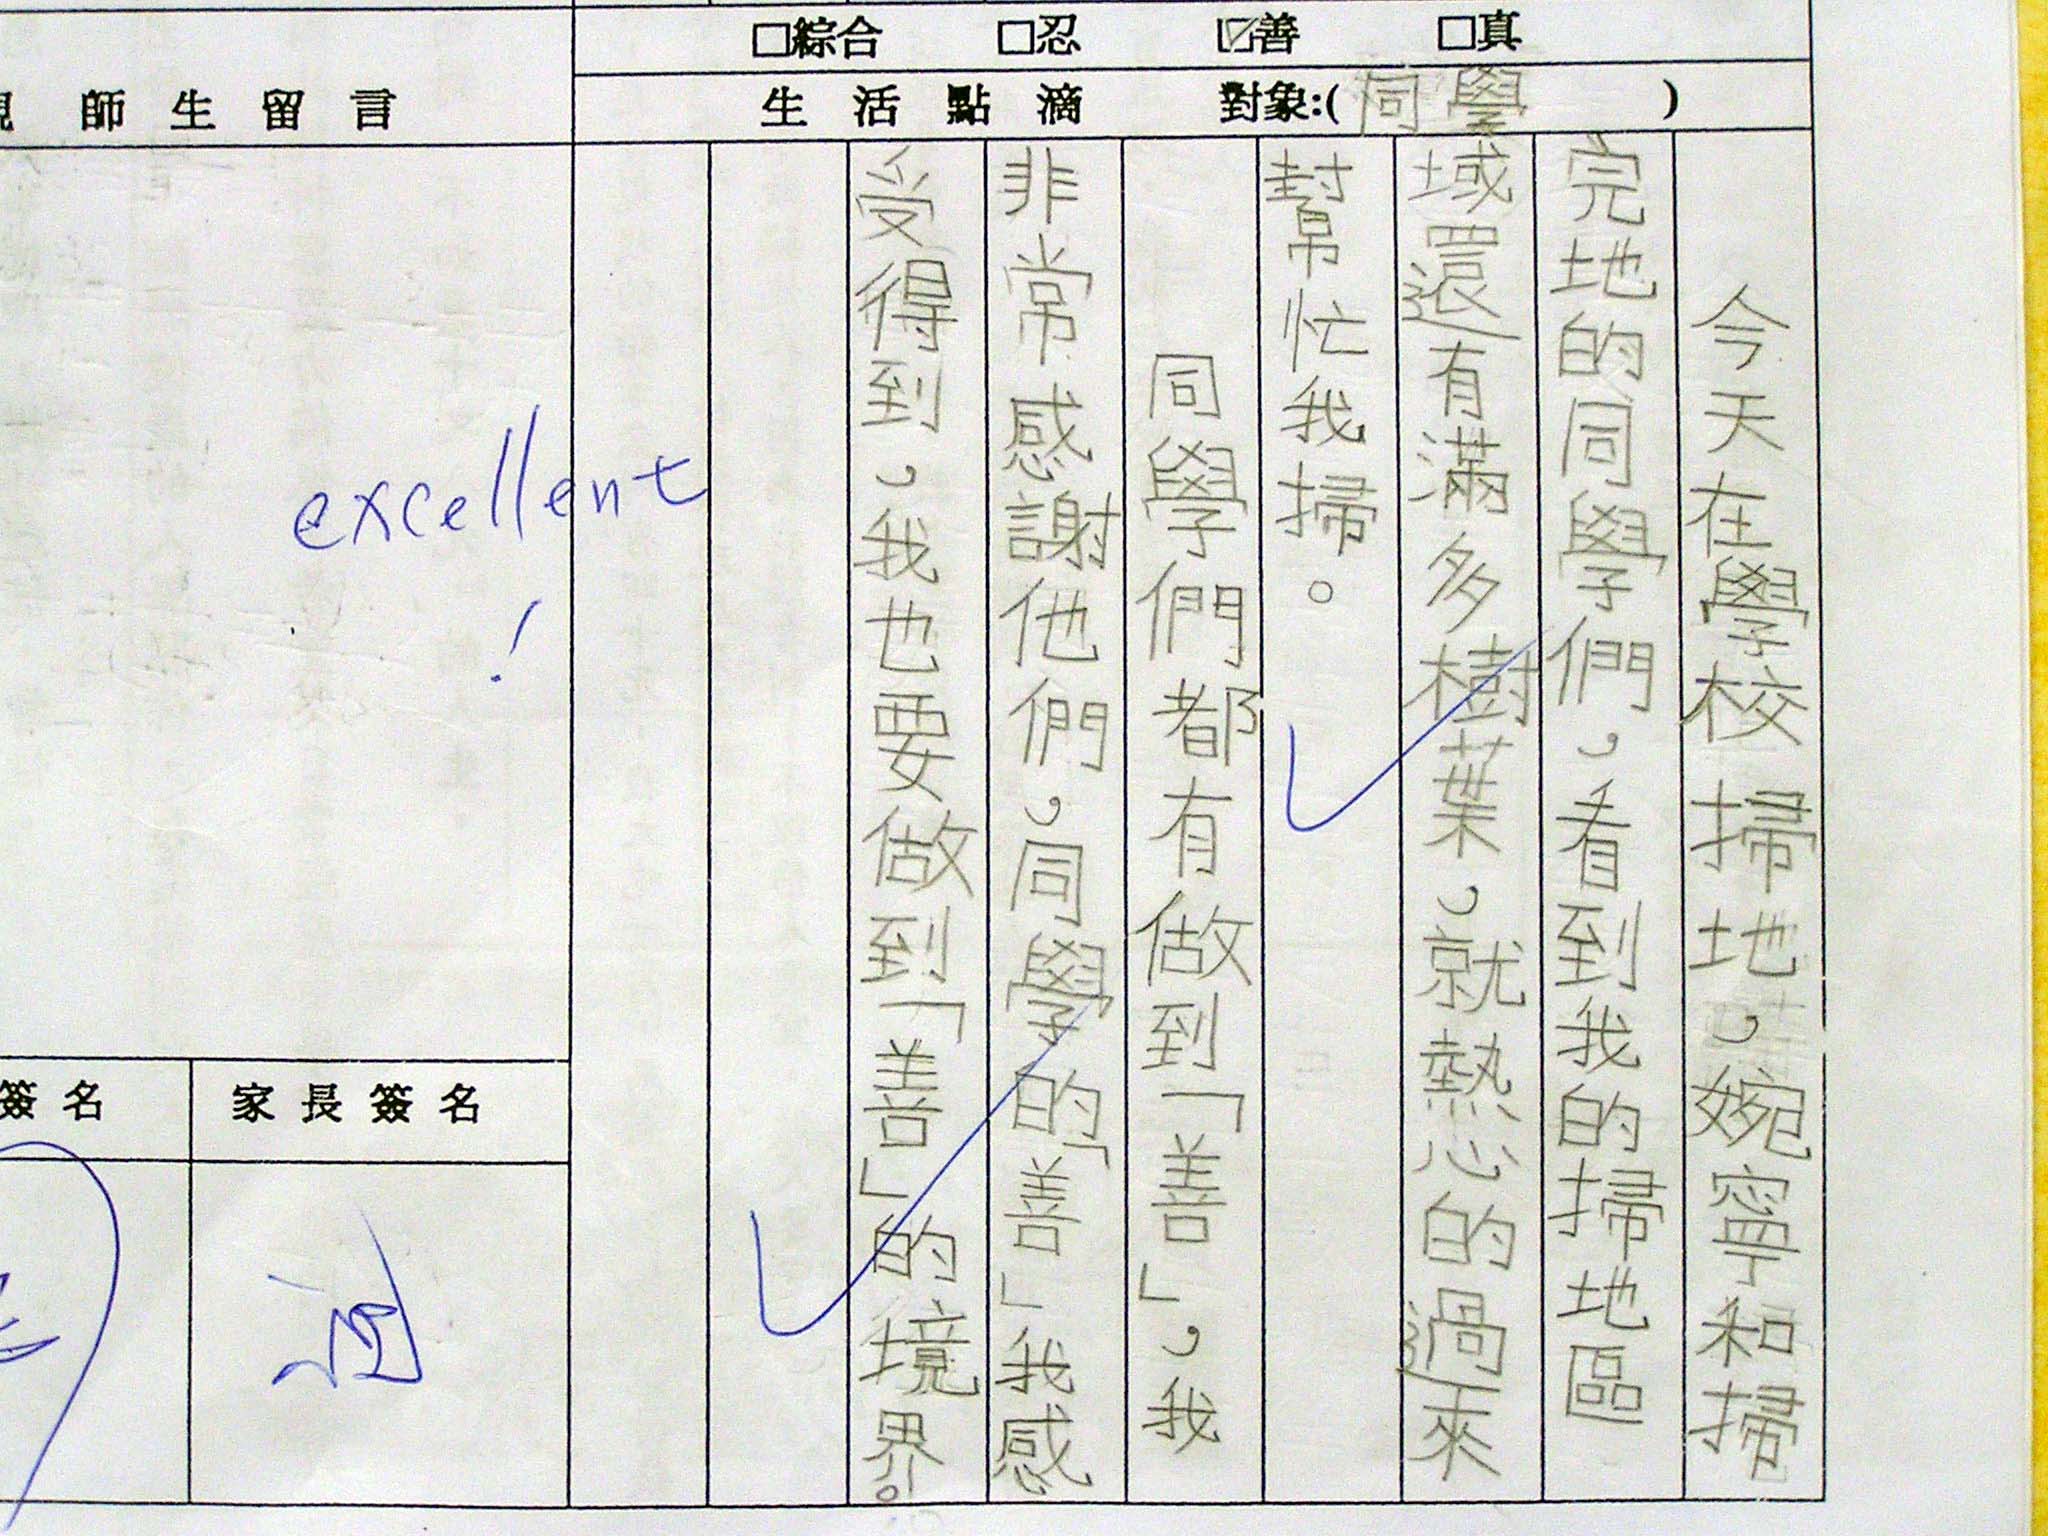 □綜合 □忍 ☑善 □真
生活點滴 對象:(同學)
今天在學校掃地,婉寧和掃
完地的同學們,看到我的掃地區
域還有滿多樹葉,就熱心的過來
幫忙我掃。
同學們都有做到「善」,我
非常感謝他們,同學的「善」我感
受得到,我也要做到「善」的境界。
師生留言
excellent
!
簽名
家長簽名